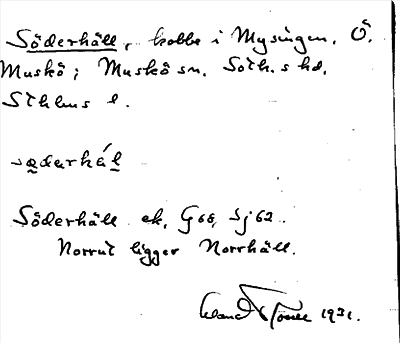 Söderhäll, kobbe i Mysingen. Ö.
Muskö; Muskö sn. Soth.s hd.
Sthlms l.
Söderhäll ek. G 68, Sj 62.
Norrut ligger Norrhäll.
1931.